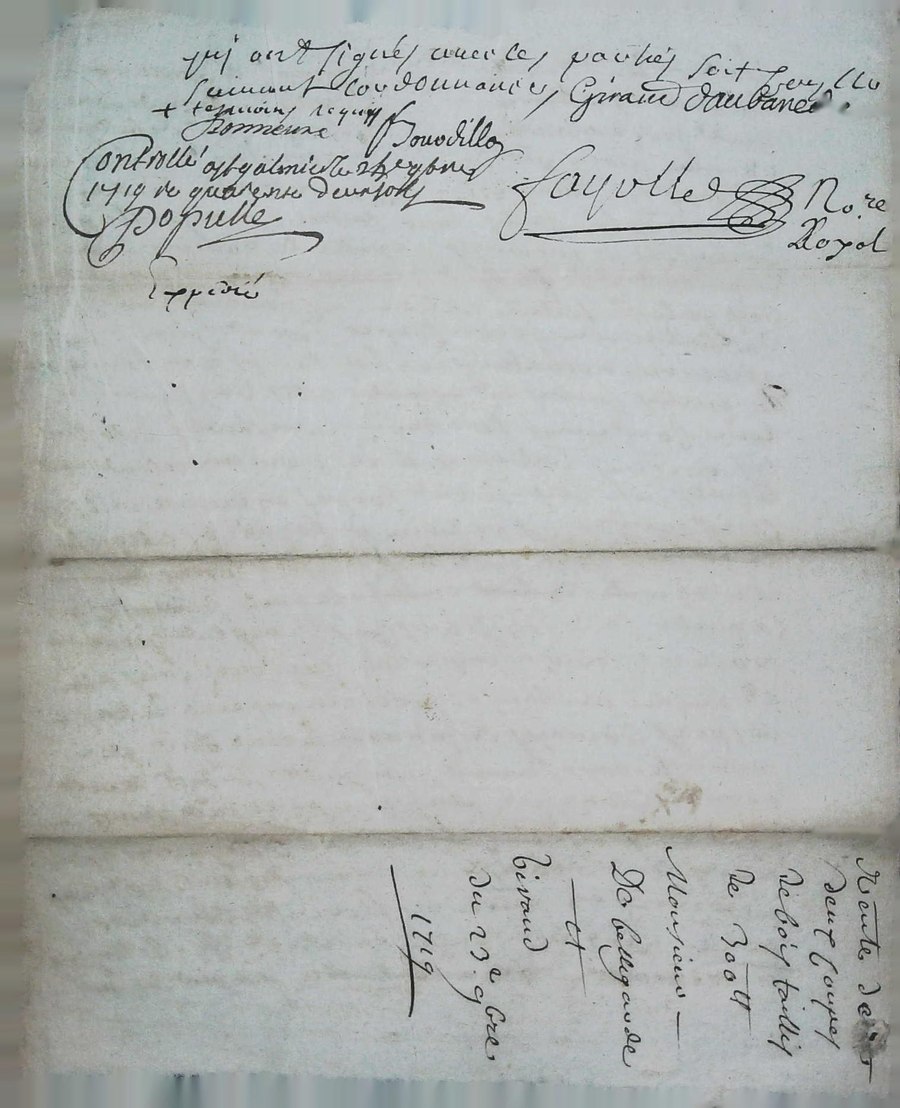 qui ont signés avec les parties soit
suivant l'ordonnance Giraud daubane
+ tesmoins requis
Bonnenne Bourdillon
Controllé a le 24e 9bre
1719 re quarente deux sols
Populle
fayolle No.re
Royal
Expedié
Vente de
deux coupes
de bois taillis
de 300 ll
Monsieur
De bellegarde
et
Giraud
du 23.e 9bre.
1719